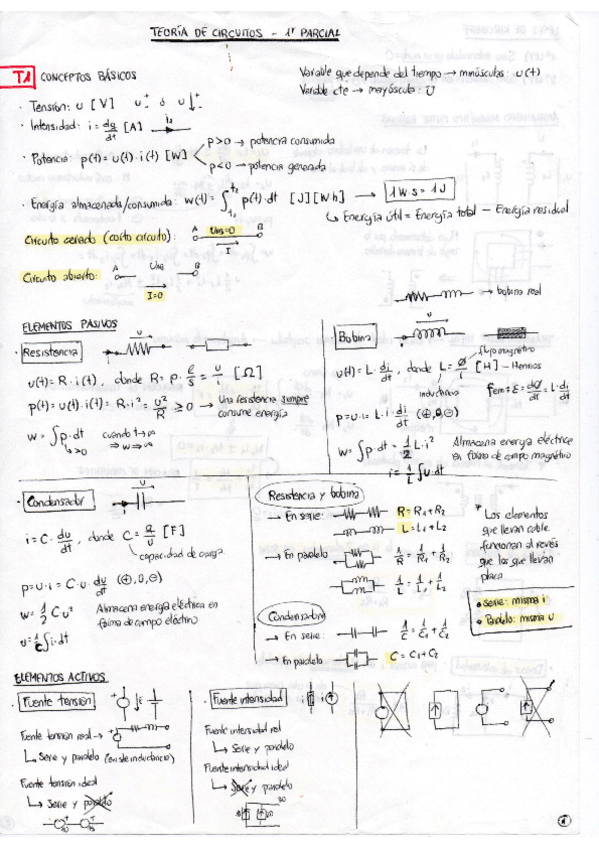 TEORÍA DE CIRCUITOS - 1er PARCIAL
T1 CONCEPTOS BÁSICOS
Variable que depende del tiempo → minúsculas: u(t)
Variable cte → mayúscula: U
· Tensión: u [V] u+ ó u+
· Intensidad: i = dq/dt [A]
· Potencia: p(t) = u(t) · i(t) [W]
p>0 → potencia consumida
p<0 → potencia generada
· Energía almacenada/consumida: w(t) = ∫ p(t) · dt [J][Wh] → 1W·s = 1J
↳ Energía útil = Energía total - Energía residual
Circuito cerrado (corto circuito): A UAB=0 B
I
Circuito abierto: A UAB B
I=0
→ bobina real
ELEMENTOS PASIVOS
· Resistencia
u
u(t) = R · i(t), donde R = ρ · ℓ/S = u/i [Ω]
p(t) = u(t) · i(t) = R · i² = u²/R ≥ 0 → Una resistencia siempre consume energía
w = ∫ p · dt cuando t→∞ ⇒ w→∞
>0
Bobina
u
flujo magnético
u(t) = L · di/dt, donde L = Ø/i [H] - Henrios
inductancia
fem = ε = dØ/dt = L · di/dt
p = u · i = L · i · di/dt (⊕,0,⊖)
w = ∫ p · dt = 1/2 L · i² Almacena energía eléctrica en forma de campo magnético
i = 1/L ∫ u · dt
· Condensador
u
i = C · du/dt, donde C = Q/u [F]
capacidad de carga
p = u · i = C · u · du/dt (⊕,0,⊖)
w = 1/2 C u² Almacena energía eléctrica en forma de campo eléctrico
u = 1/C ∫ i · dt
Resistencia y bobina
→ En serie: R = R1 + R2
L = L1 + L2
→ En paralelo 1/R = 1/R1 + 1/R2
1/L = 1/L1 + 1/L2
Condensador
→ En serie: 1/C = 1/C1 + 1/C2
→ En paralelo C = C1 + C2
* Los elementos
que llevan cable
funcionan al revés
que los que llevan
placa
• Serie: misma i
• Paralelo: misma u
ELEMENTOS ACTIVOS
· Fuente tensión
E
Fuente tensión real →
↳ Serie y paralelo (existe inductancia)
Fuente tensión ideal
↳ Serie y paralelo
· Fuente intensidad
i
Fuente intensidad real
↳ Serie y paralelo
Fuente intensidad ideal
↳ Serie y paralelo
1